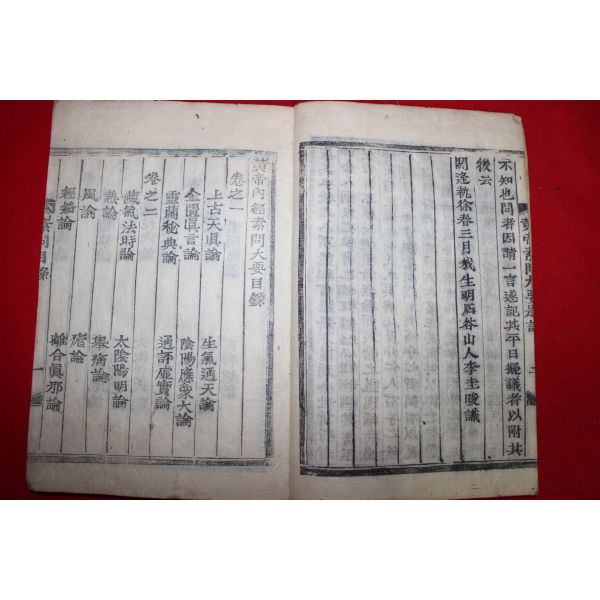 不知也問者因請一言遂記其平日擬議者以附其
後云
閼逢執徐春三月哉生明石谷山人李圭晙識
黃帝內經素問大要目錄
卷之一
上古天眞論 生氣通天論
金匱眞言論 陰陽應象大論
靈蘭秘典論 通評虛實論
卷之二
藏氣法時論 太陰陽明論
熱論 擧痛論
風論 瘧論
經絡論 離合眞邪論
素問目錄 一